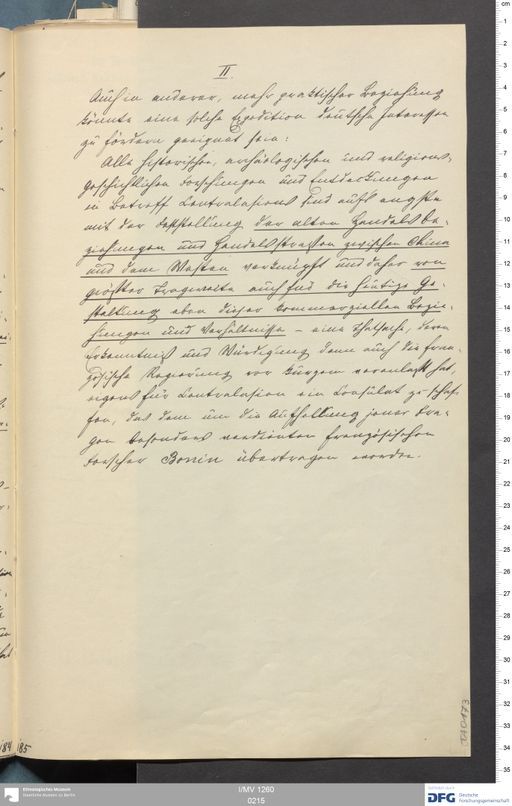 II.
Auch in anderer, mehr praktischer Beziehung
könnte eine solche Expedition deutsche Interessen
zu fördern geeignet sein:
Alle historischen, archäologischen und religions-
geschichtlichen Forschungen und Entdeckungen
in Betreff Centralasiens sind aufs engste
mit der Feststellung der alten Handelsbe-
ziehungen und Handelsstrassen zwischen China
und dem Westen verknüpft und daher von
größter Tragweite auch für die heutige Ge-
staltung eben dieser kommerziellen Bezie-
hungen und Verhältnisse – eine Thatsache, deren
Erkenntniß und Würdigung denn auch die fran-
zösische Regierung vor kurzem veranlaßt hat,
eigens für Centralasien ein Consulat zu schaf-
fen, das dem um die Aufhellung jener Fra-
gen besonders verdienten französischen
Forscher Bonin übertragen worden.
184 185
I/MV 1260
0215
Ethnologisches Museum
Staatliche Museen zu Berlin
DFG Deutsche
Forschungsgemeinschaft
cm
1
2
3
4
5
6
7
8
9
10
11
12
13
14
15
16
17
18
19
20
21
22
23
24
25
26
27
28
29
30
31
32
33
34
35